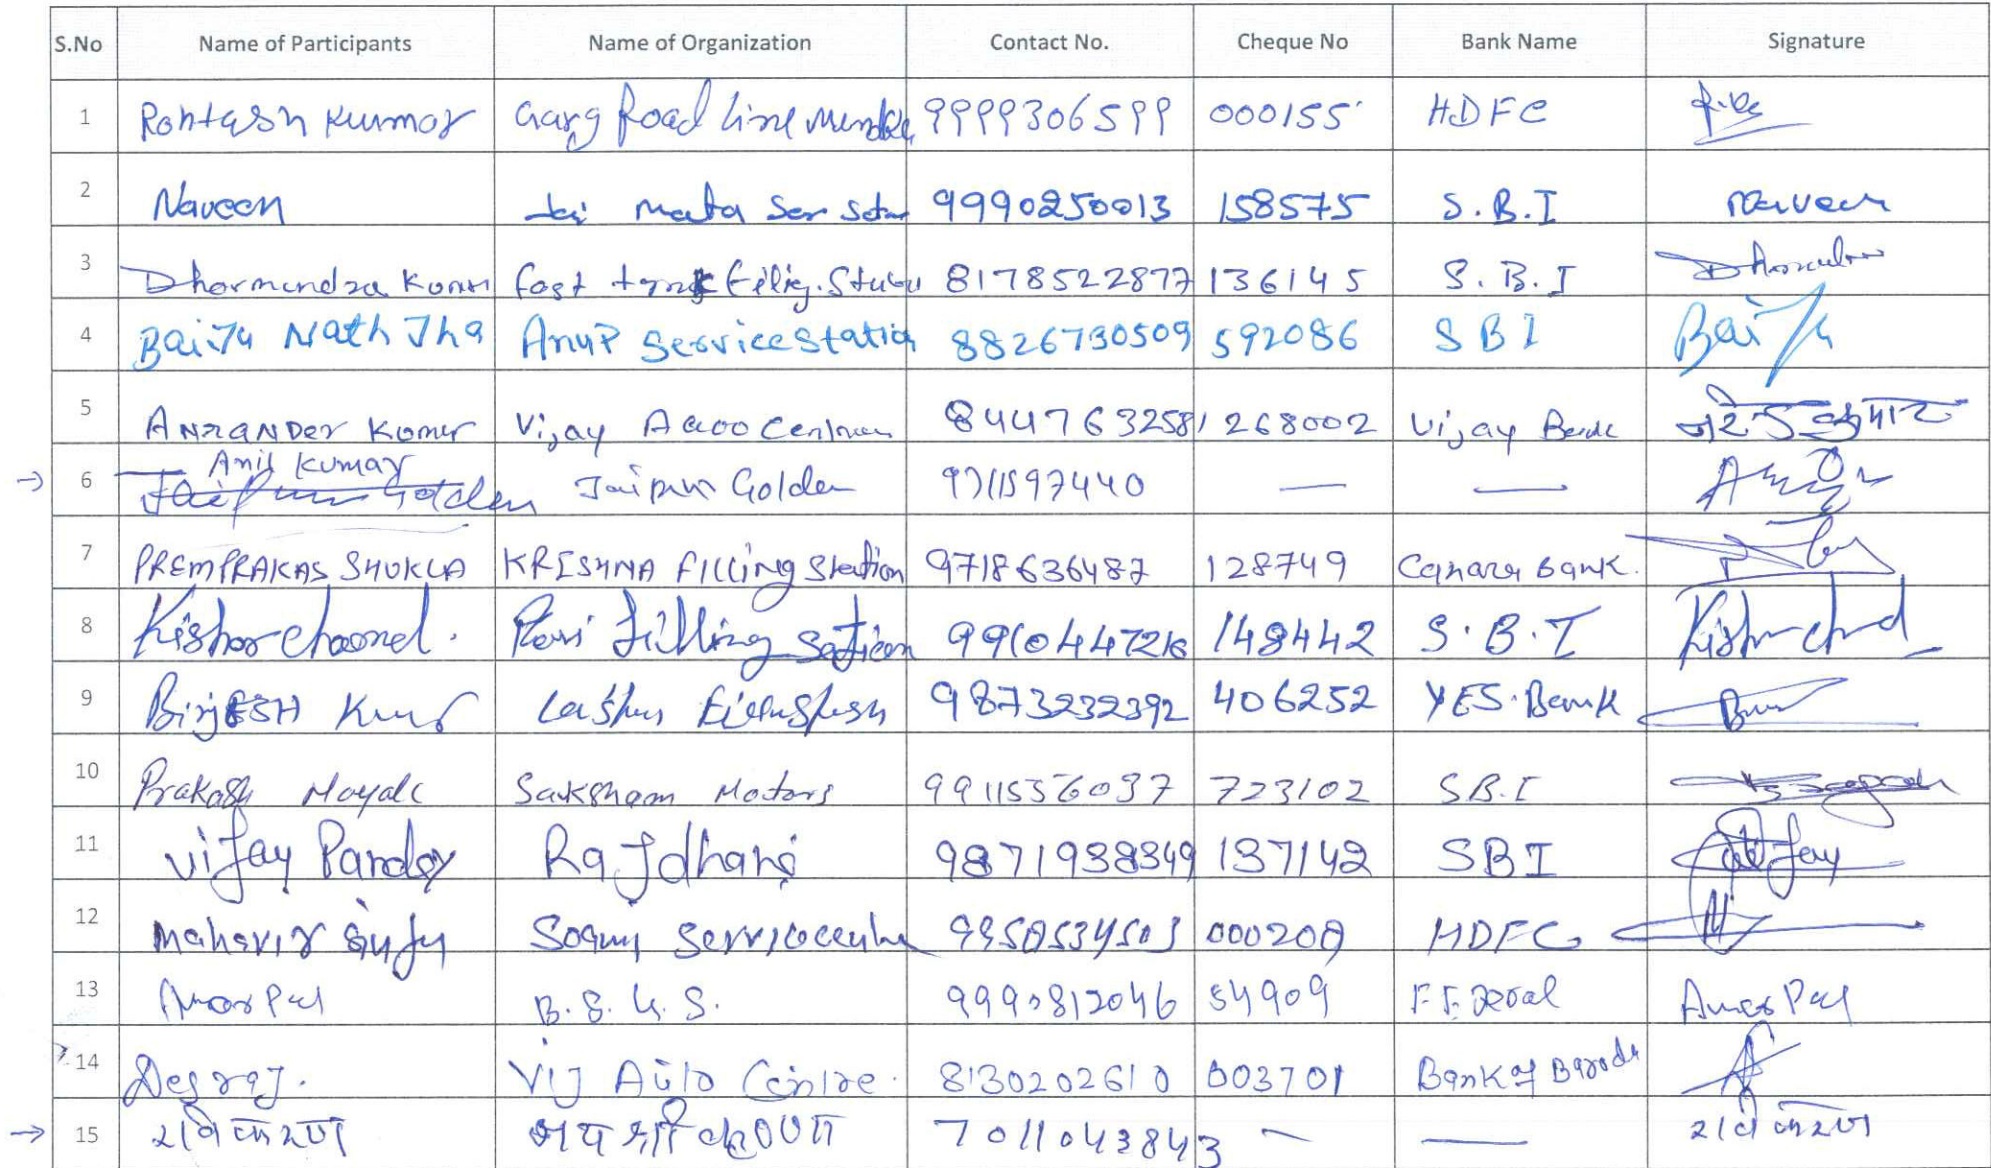 S.No Name of Participants Name of Organization Contact No. Cheque No Bank Name Signature
1 Rohtash Kumar Garg Road Line 9999306599 000155 HDFC
2 Naveen Jai Mata Ser 9990250013 158575 S.B.I Naveen
3 Dharmendra Kumar fast 8178522877 136145 S.B.I
4 Baiju Nath Jha Anup Service Station 8826730509 592086 SBI Baiju
5 Kumar Vijay 8447632581 268002 Vijay Bank
6 Anil Kumar Jaipur Golden 9711597440 — —
7 PREMPRAKAS SHUKLA KRISHNA FILLing Station 9718636487 128749 Canara Bank.
8 Kishor chand. Ravi filling 9910447216 148442 S.B.I Kishor chand
9 BirjESH 9873232392 406252 YES.Bank
10 Prakash Saksham Motors 9911556037 723102 S.B.I
11 Vijay Pandey Rajdhani 9871938349 137142 SBI Vijay
12 Mahavir HDFC
13 Amar Pal B.S. 9990812046 54909 Amar Pal
14 Desraj. Vij Auto Centre. 8130202610 003701 Bank of Baroda
15 रविकरण जय श्री कृष्णा 7011043843 — — रविकरण